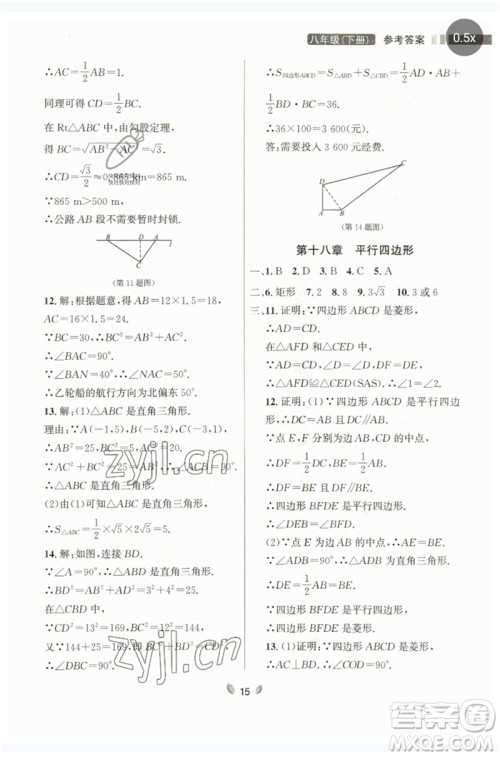 八年级(下册) 参考答案
0.5x
∴AC=1/2AB=1.
同理可得 CD=1/2BC.
在 Rt△ABC 中,由勾股定理,
得 BC=√(AB²-AC²)=√3.
∴CD=√3/2≈0.865 km=865 m.
∵865 m>500 m,
∴公路 AB 段不需要暂时封锁.
A D B
C
(第 11 题图)
12. 解:根据题意,得 AB=12×1.5=18,
AC=16×1.5=24.
∵BC=30,∴BC²=AB²+AC².
∴∠BAC=90°.
∵∠BAN=40°,∴∠NAC=50°.
∴乙轮船的航行方向为北偏东50°.
13. 解:(1)△ABC 是直角三角形.
理由:∵A(-1,5),B(-3,1),
∴AB²=20.
同理可得 AC²=5,BC²=25.
∴AB²+AC²=BC².
∴△ABC 是直角三角形.
(2)由(1)可得△ABC 是直角三角形,
∴S△ABC=1/2×√5×2√5=5.
14. 解:如图,连接 BD.
∵∠A=90°,∴△ABD 是直角三角形.
∴BD²=AB²+AD²=25.
在△CBD 中,
∵CD²=132=169,BC²=122=144,
又∵144+25=169,
∴BC²+BD²=CD².
∴∠CBD=90°.
∴S四边形ABCD=S△BAD+S△DBC=1/2AD·AB+
1/2BD·BC=36.
∴36×100=3 600(元).
答:需要投入 3 600 元经费.
C
D
A B
(第 14 题图)
第十八章 平行四边形
一、1. B 2. D 3. B 4. C 5. A
二、6. 矩形 7. 2 8. 8 9. 3√3 10. 3 或 6
三、11. 证明:∵四边形 ABCD 是菱形,
∴AD=CD.
在△ADF 和△CDE 中,
∴△ADF≌△CDE(SAS).
12. 证明:(1)∵四边形 ABCD 是平行四边形,
∴DC=AB,且 DC∥AB.
∵点 E,F 分别是 AB,CD 的中点,
∴DF=1/2DC,BE=1/2AB.
∴DF=BE.
∴四边形 BFDE 是平行四边形.
(2)∵点 E 为 AB 的中点,∠ADB=90°,
∴DE=1/2AB=BE.
∵四边形 BFDE 是平行四边形,
∴四边形 BFDE 是菱形.
13. (1)证明:∵四边形 ABCD 是菱形,
15
zyjl.cn
zyjl.cn